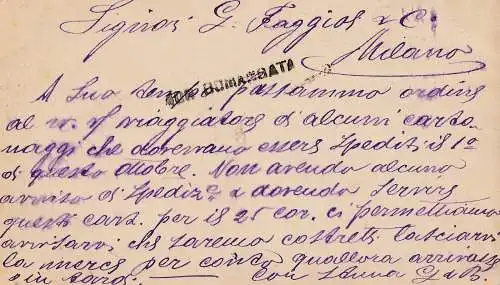 Signori G. Faggios & C.
Milano
NON DOMANDATA
A Suo tempo passammo ordine
al v. s/ viaggiatore d'alcuni carto
naggi che dovevano essere spediti il 1°
di questo ottobre. Non avendo alcuno
avviso di spediz.e e dovendo servirs
questi cart. per il 25 cor. ci permettiamo
avvisarvi che saremo costretti lasciarvi
la merce per conto quallora arrivass
in tardi. Con stima G & B.